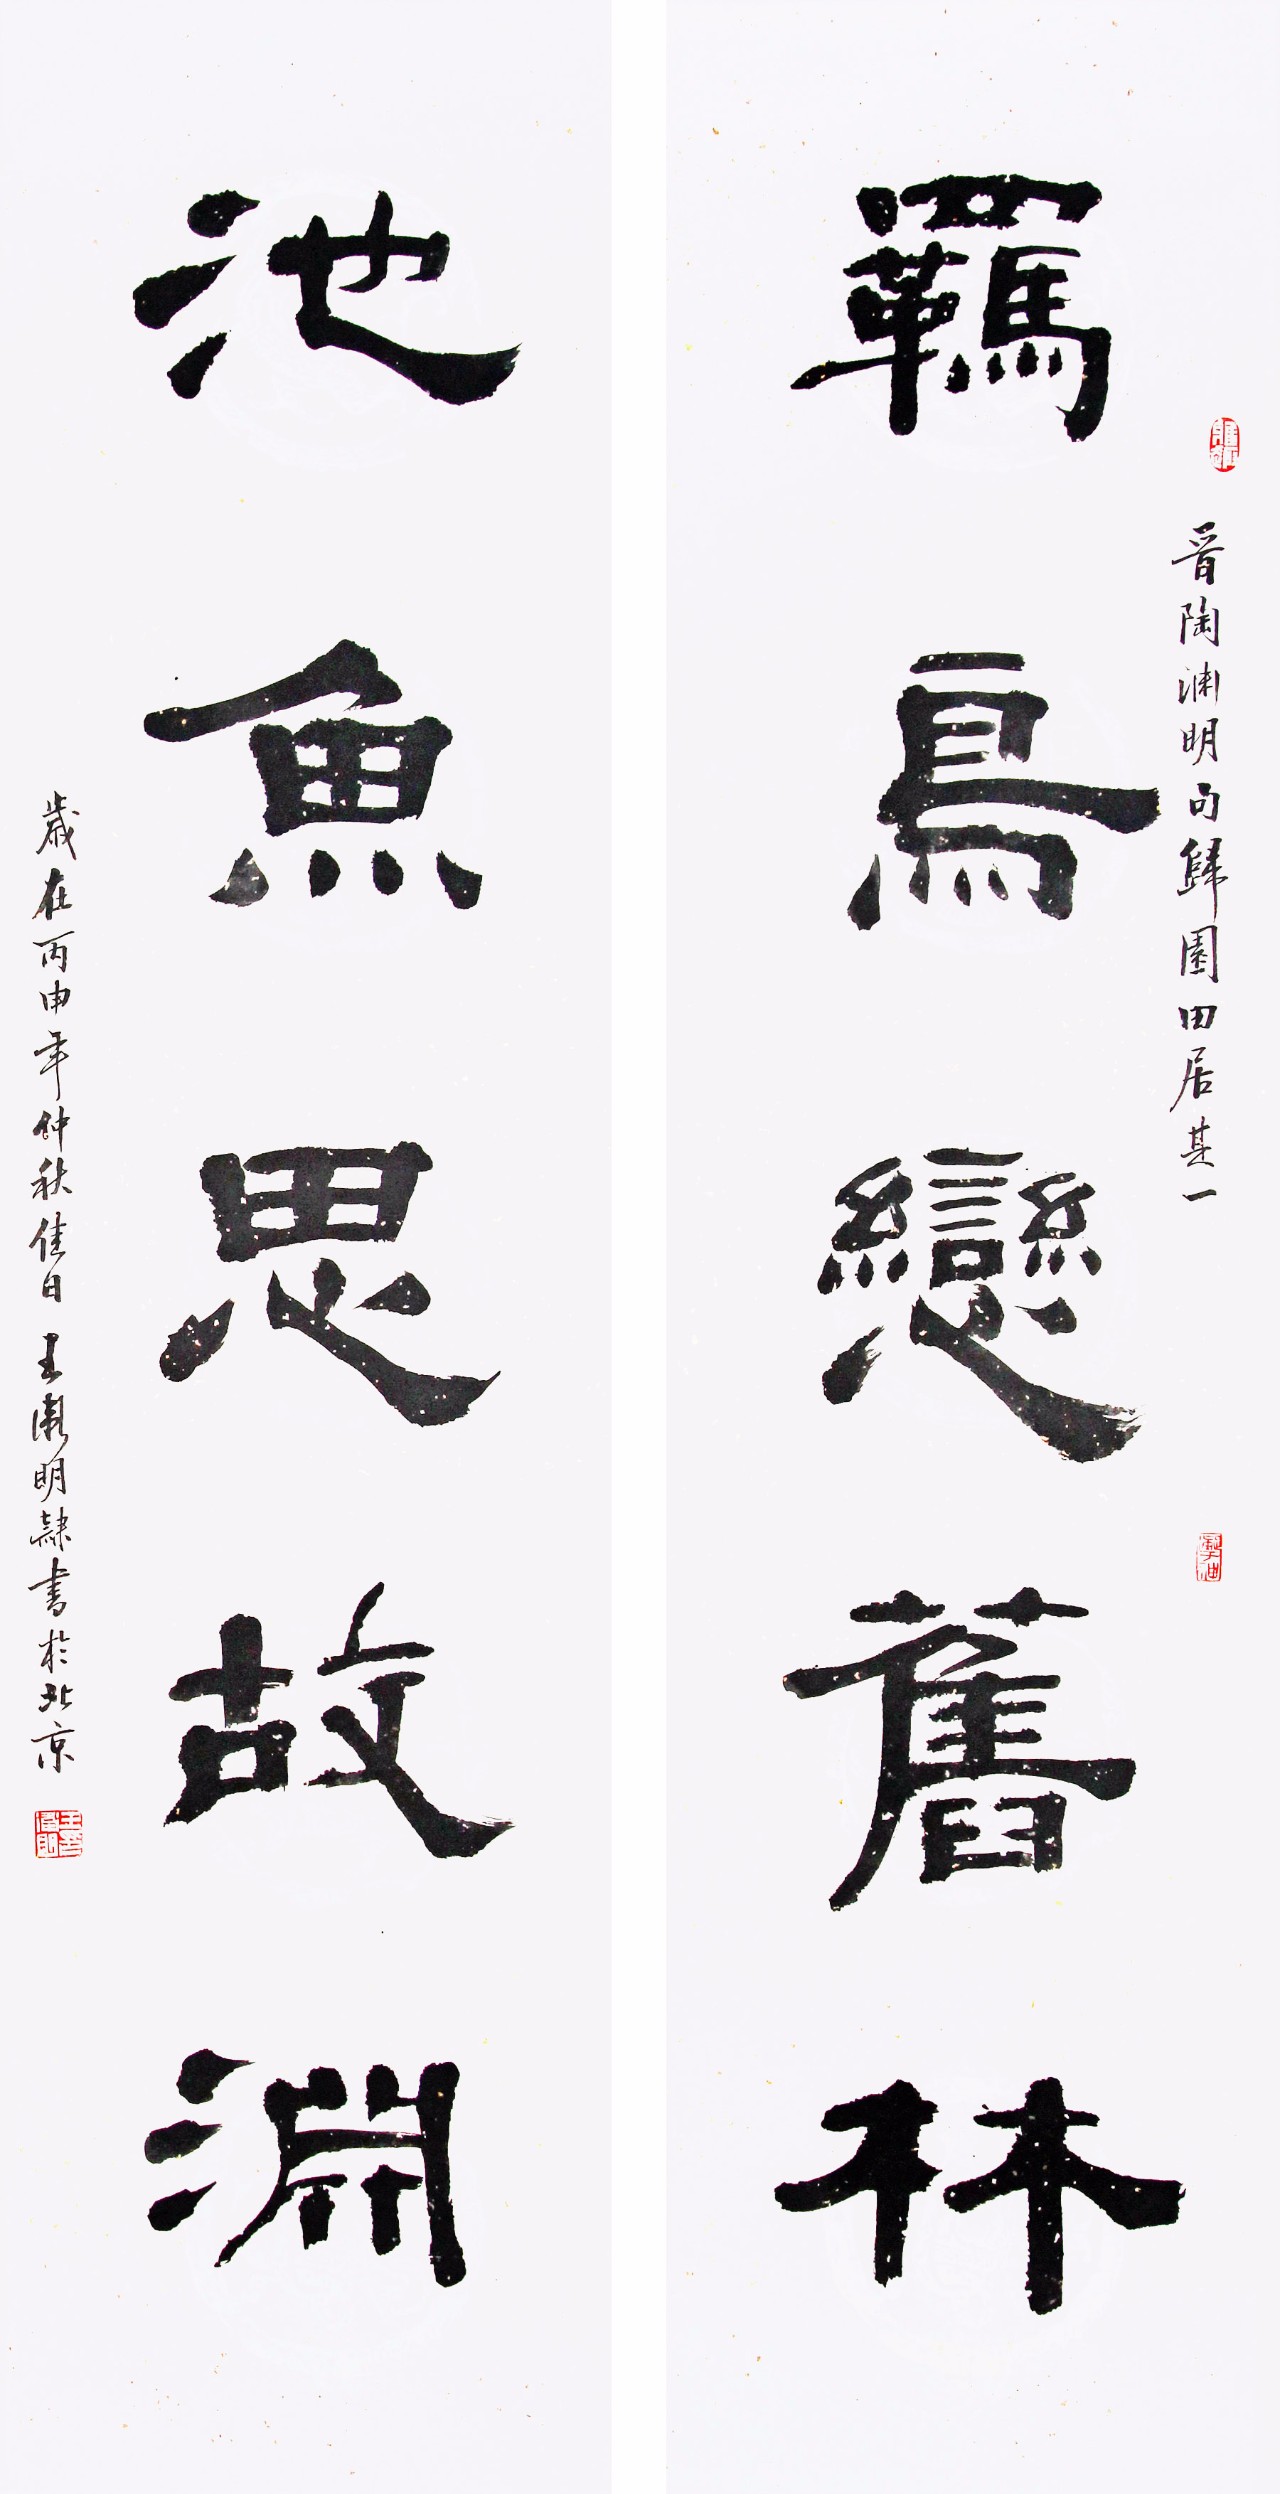 羈鳥戀舊林
晋陶渊明句歸園田居其一
池魚思故淵
歲在丙申年仲秋佳日王漱明隸書於北京